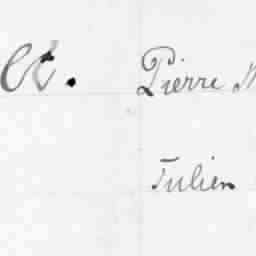 Ct. Pierre
Julien